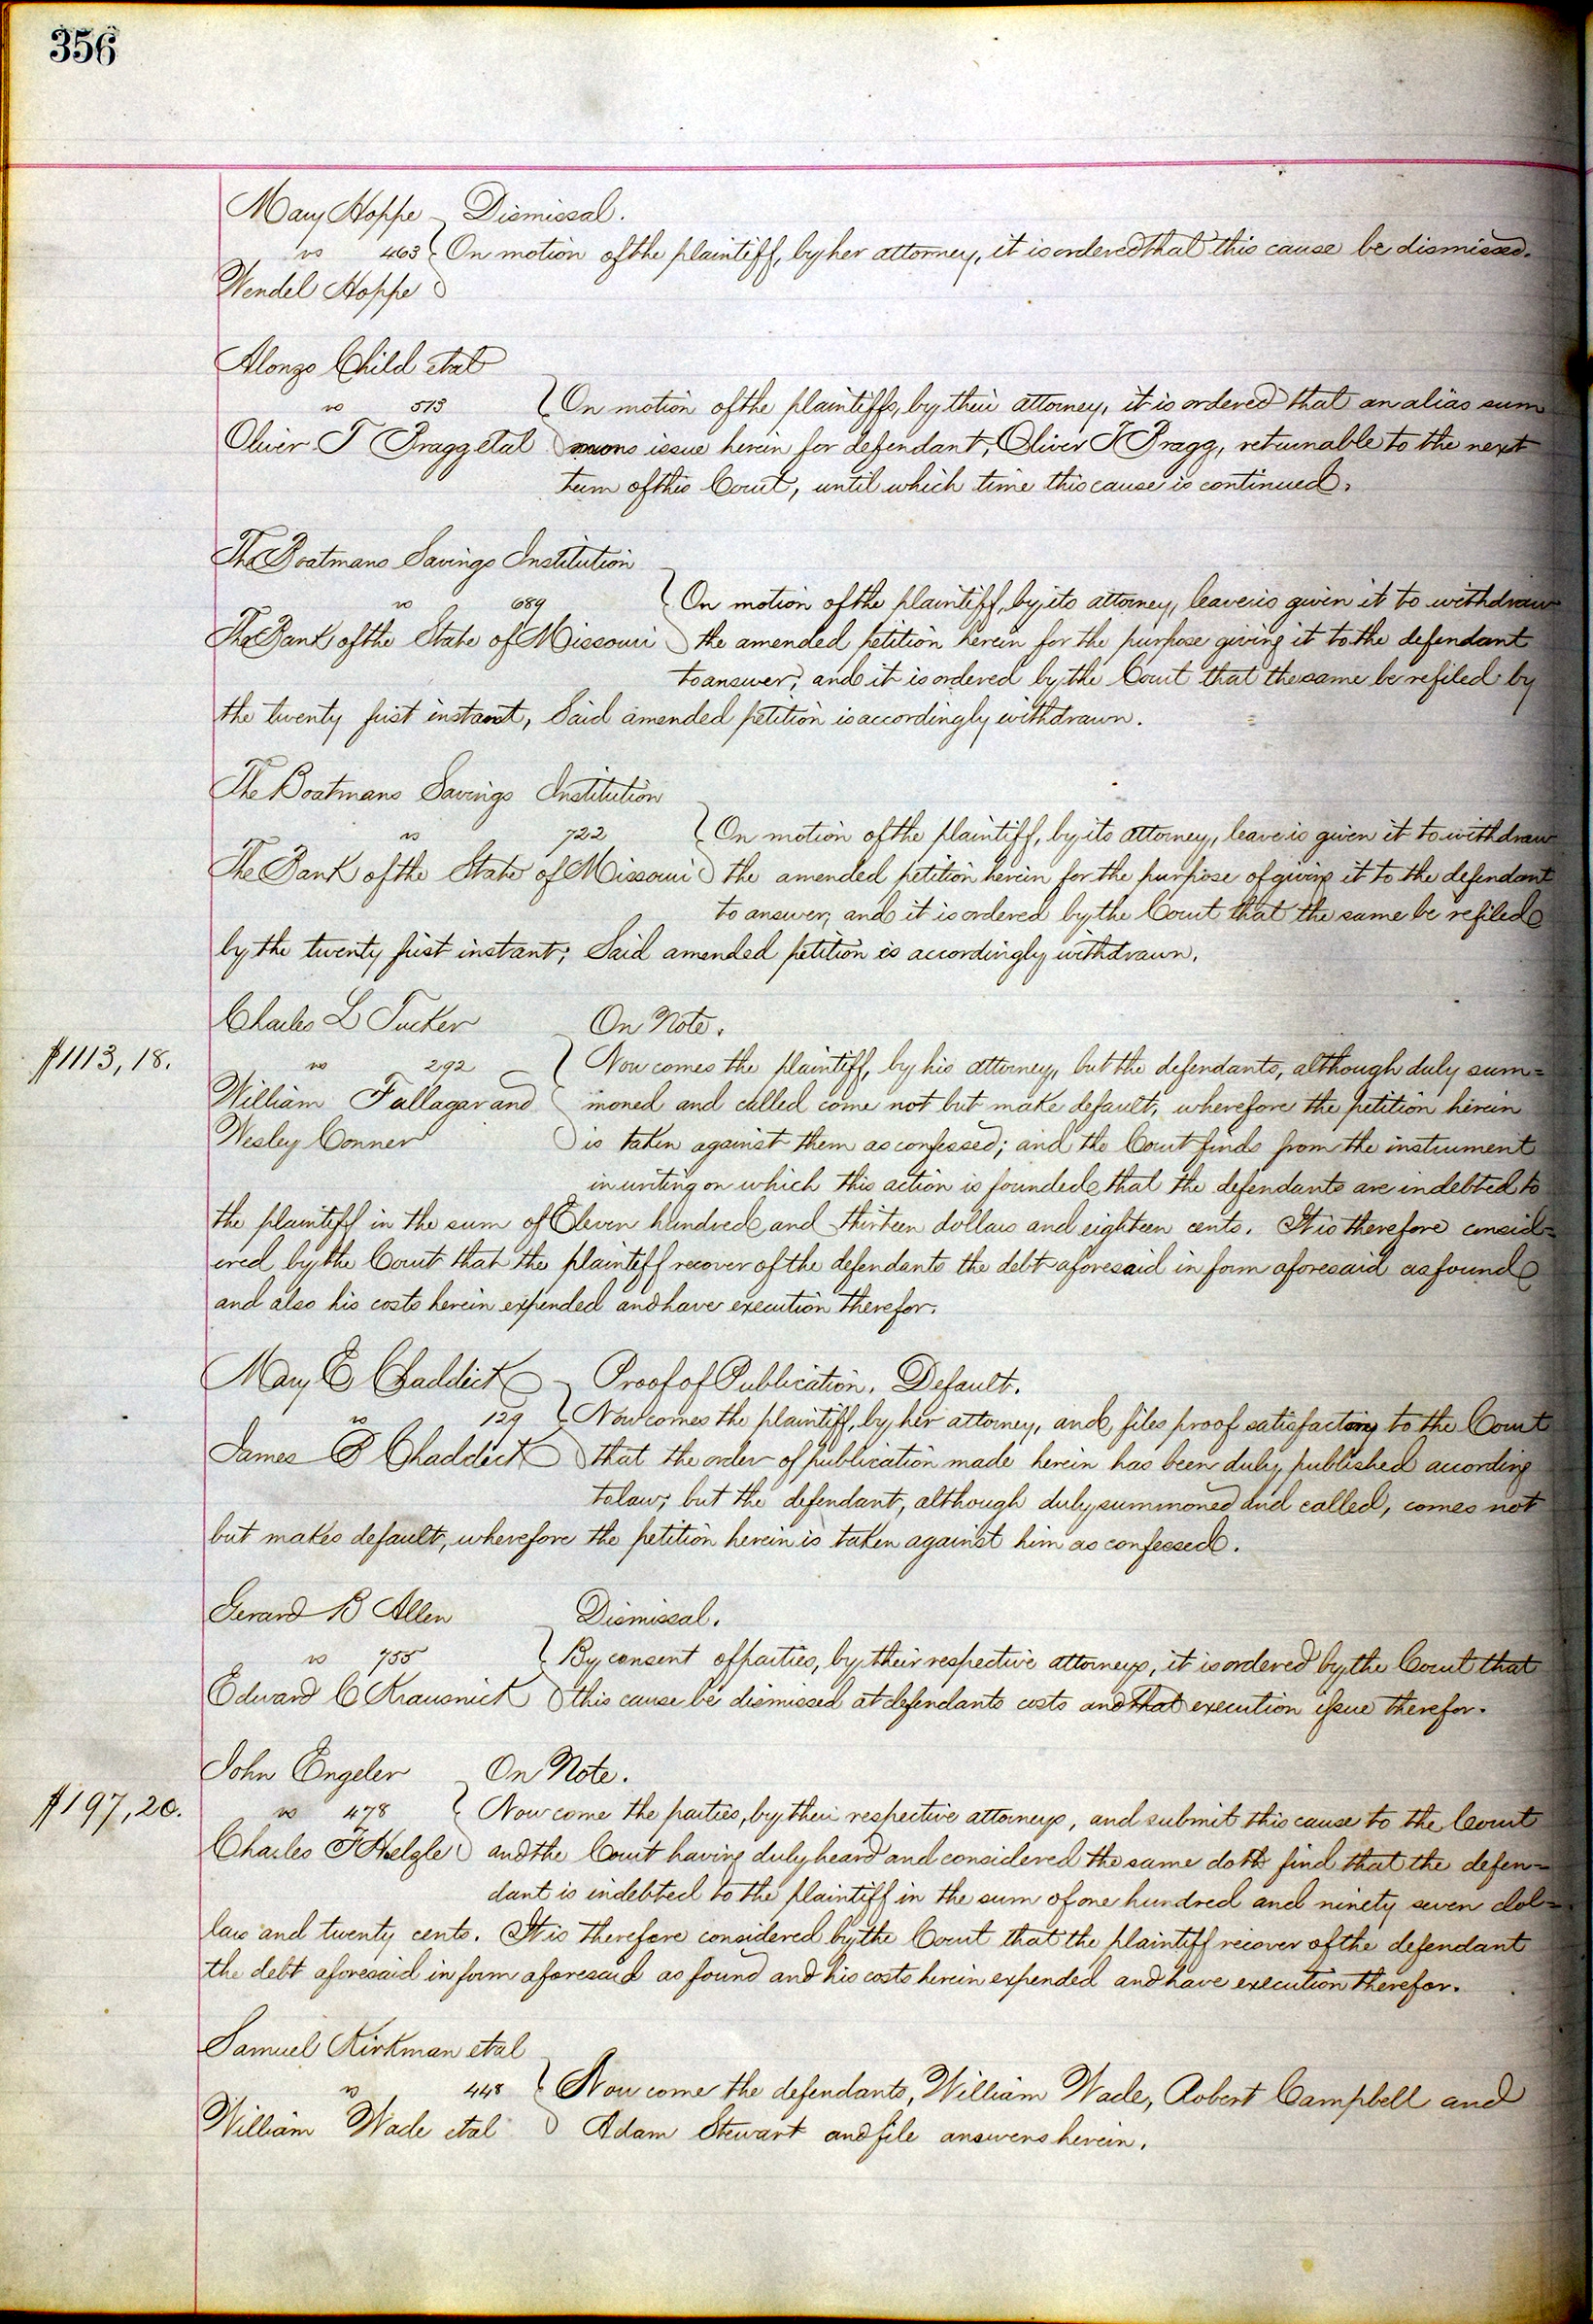 356
Mary Hoppe Dismissal.
vs 463 On motion of the plaintiff, by her attorney, it is ordered that this cause be dismissed.
Wendel Hoppe
Alonzo Child etal
vs 513 On motion of the plaintiffs, by their attorney, it is ordered that an alias sum
Oliver T Bragg etal mons issue herein for defendant, Oliver T Bragg, returnable to the next
term of this Court, until which time this cause is continued.
The Boatmans Savings Institution
vs 689 On motion of the plaintiff, by its attorney, leave is given it to withdraw
The Bank of the State of Missouri the amended petition herein for the purpose giving it to the defendant
to answer; and it is ordered by the Court that the same be refiled by
the twenty first instant, Said amended petition is accordingly withdrawn.
The Boatmans Savings Institution
vs 722 On motion of the plaintiff, by its attorney, leave is given it to withdraw
The Bank of the State of Missouri the amended petition herein for the purpose of giving it to the defendant
to answer; and it is ordered by the Court that the same be refiled
by the twenty first instant; Said amended petition is accordingly withdrawn.
Charles L Tucker On Note.
$1113,18. vs 292 Now comes the plaintiff, by his attorney, but the defendants, although duly sum=
William Fallagar and moned and called come not but make default, wherefore the petition herein
Wesley Conner is taken against them as confessed; and the Court finds from the instrument
in writing on which this action is founded that the defendants are indebted to
the plaintiff in the sum of Eleven hundred and thirteen dollars and eighteen cents. It is therefore consid=
ered by the Court that the plaintiff recover of the defendants the debt aforesaid in form aforesaid as found
and also his costs herein expended and have execution therefor.
Mary E Chaddick Proof of Publication. Default.
vs 129 Now comes the plaintiff, by her attorney, and files proof satisfactory to the Court
James P Chaddick that the order of publication made herein has been duly published according
to law; but the defendant, although duly summoned and called, comes not
but makes default, wherefore the petition herein is taken against him as confessed.
Gerard B Allen Dismissal.
vs 755 By consent of parties, by their respective attorneys, it is ordered by the Court that
Edward C Krausnick this cause be dismissed at defendants costs and that execution issue therefor.
John Engeler On Note.
$197,20. vs 478 Now come the parties, by their respective attorneys, and submit this cause to the Court
Charles F Helgle and the Court having duly heard and considered the same doth find that the defen=
dant is indebted to the plaintiff in the sum of one hundred and ninety seven dol=
lars and twenty cents. It is therefore considered by the Court that the plaintiff recover of the defendant
the debt aforesaid in form aforesaid as found and his costs herein expended and have execution therefor.
Samuel Kirkman etal
vs 448 Now come the defendants, William Wade, Robert Campbell and
William Wade etal Adam Stewart and file answers herein.